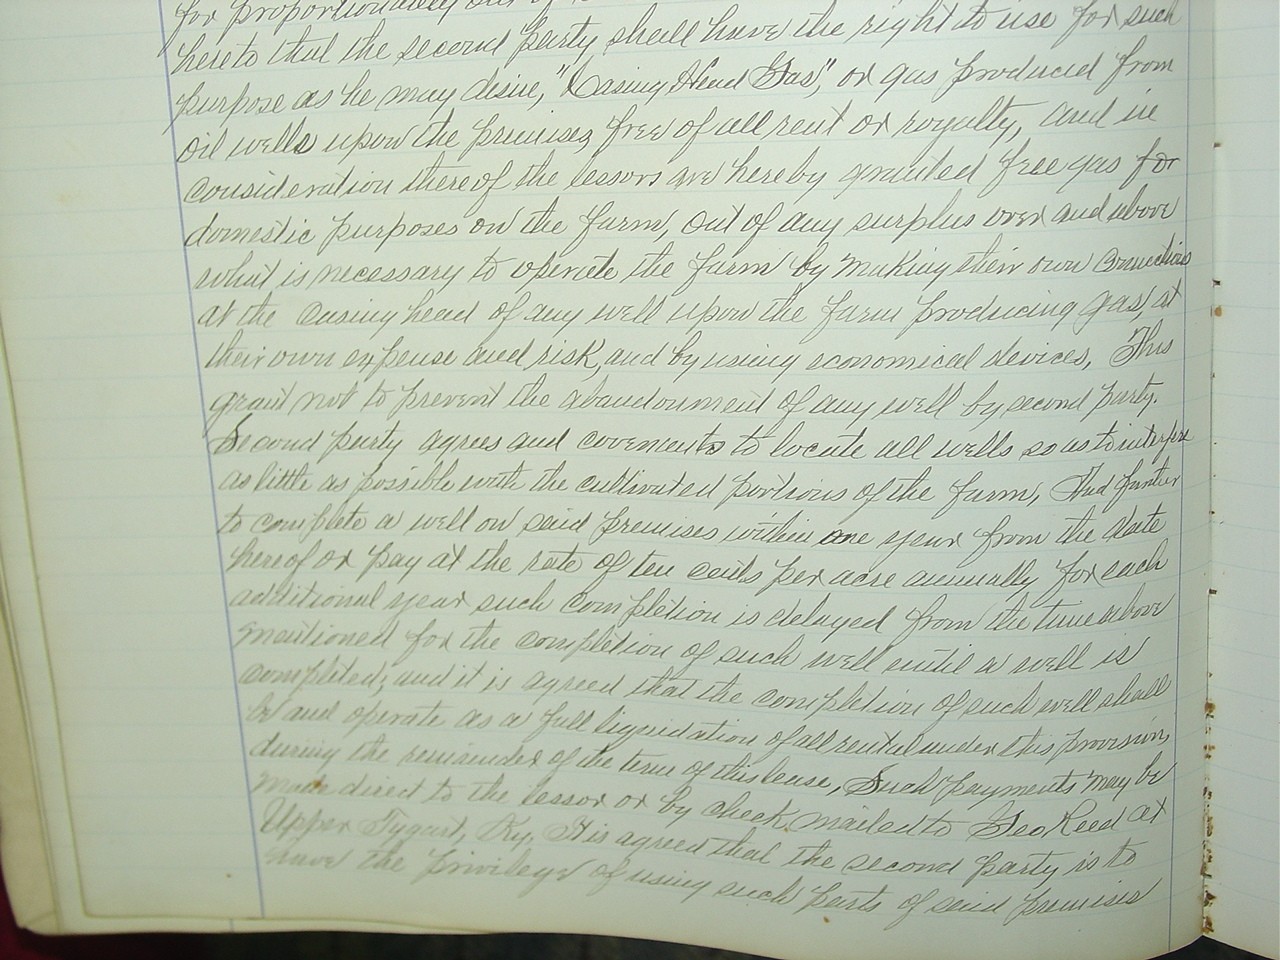 for proportionately out of
hereto that the second party shall have the right to use for such
purpose as he may desire, "Casing Head Gas", or gas produced from
oil wells upon the premises free of all rent or royalty, and in
consideration thereof the lessors are hereby granted free gas for
domestic purposes on the farm, out of any surplus over and above
what is necessary to operate the farm by making their own connections
at the casing head of any well upon the farm producing gas, at
their own expense and risk, and by using economical devices, This
grant not to prevent the abandonment of any well by second party.
Second party agrees and covenents to locate all wells so as to interfere
as little as possible with the cultivated portions of the farm, And further
to complete a well on said premises within one year from the date
hereof or pay at the rate of ten cents per acre annually for each
additional year such completion is delayed from the time above
mentioned for the completion of such well until a well is
completed; and it is agreed that the completion of such well shall
be and operate as a full liquidation of all rental under this provision,
during the remainder of the term of this lease, Such payments may be
made direct to the lessor or by check mailed to Geo Reed at
Upper Tygart, Ky, It is agreed that the second party is to
have the privilege of using such parts of said premises